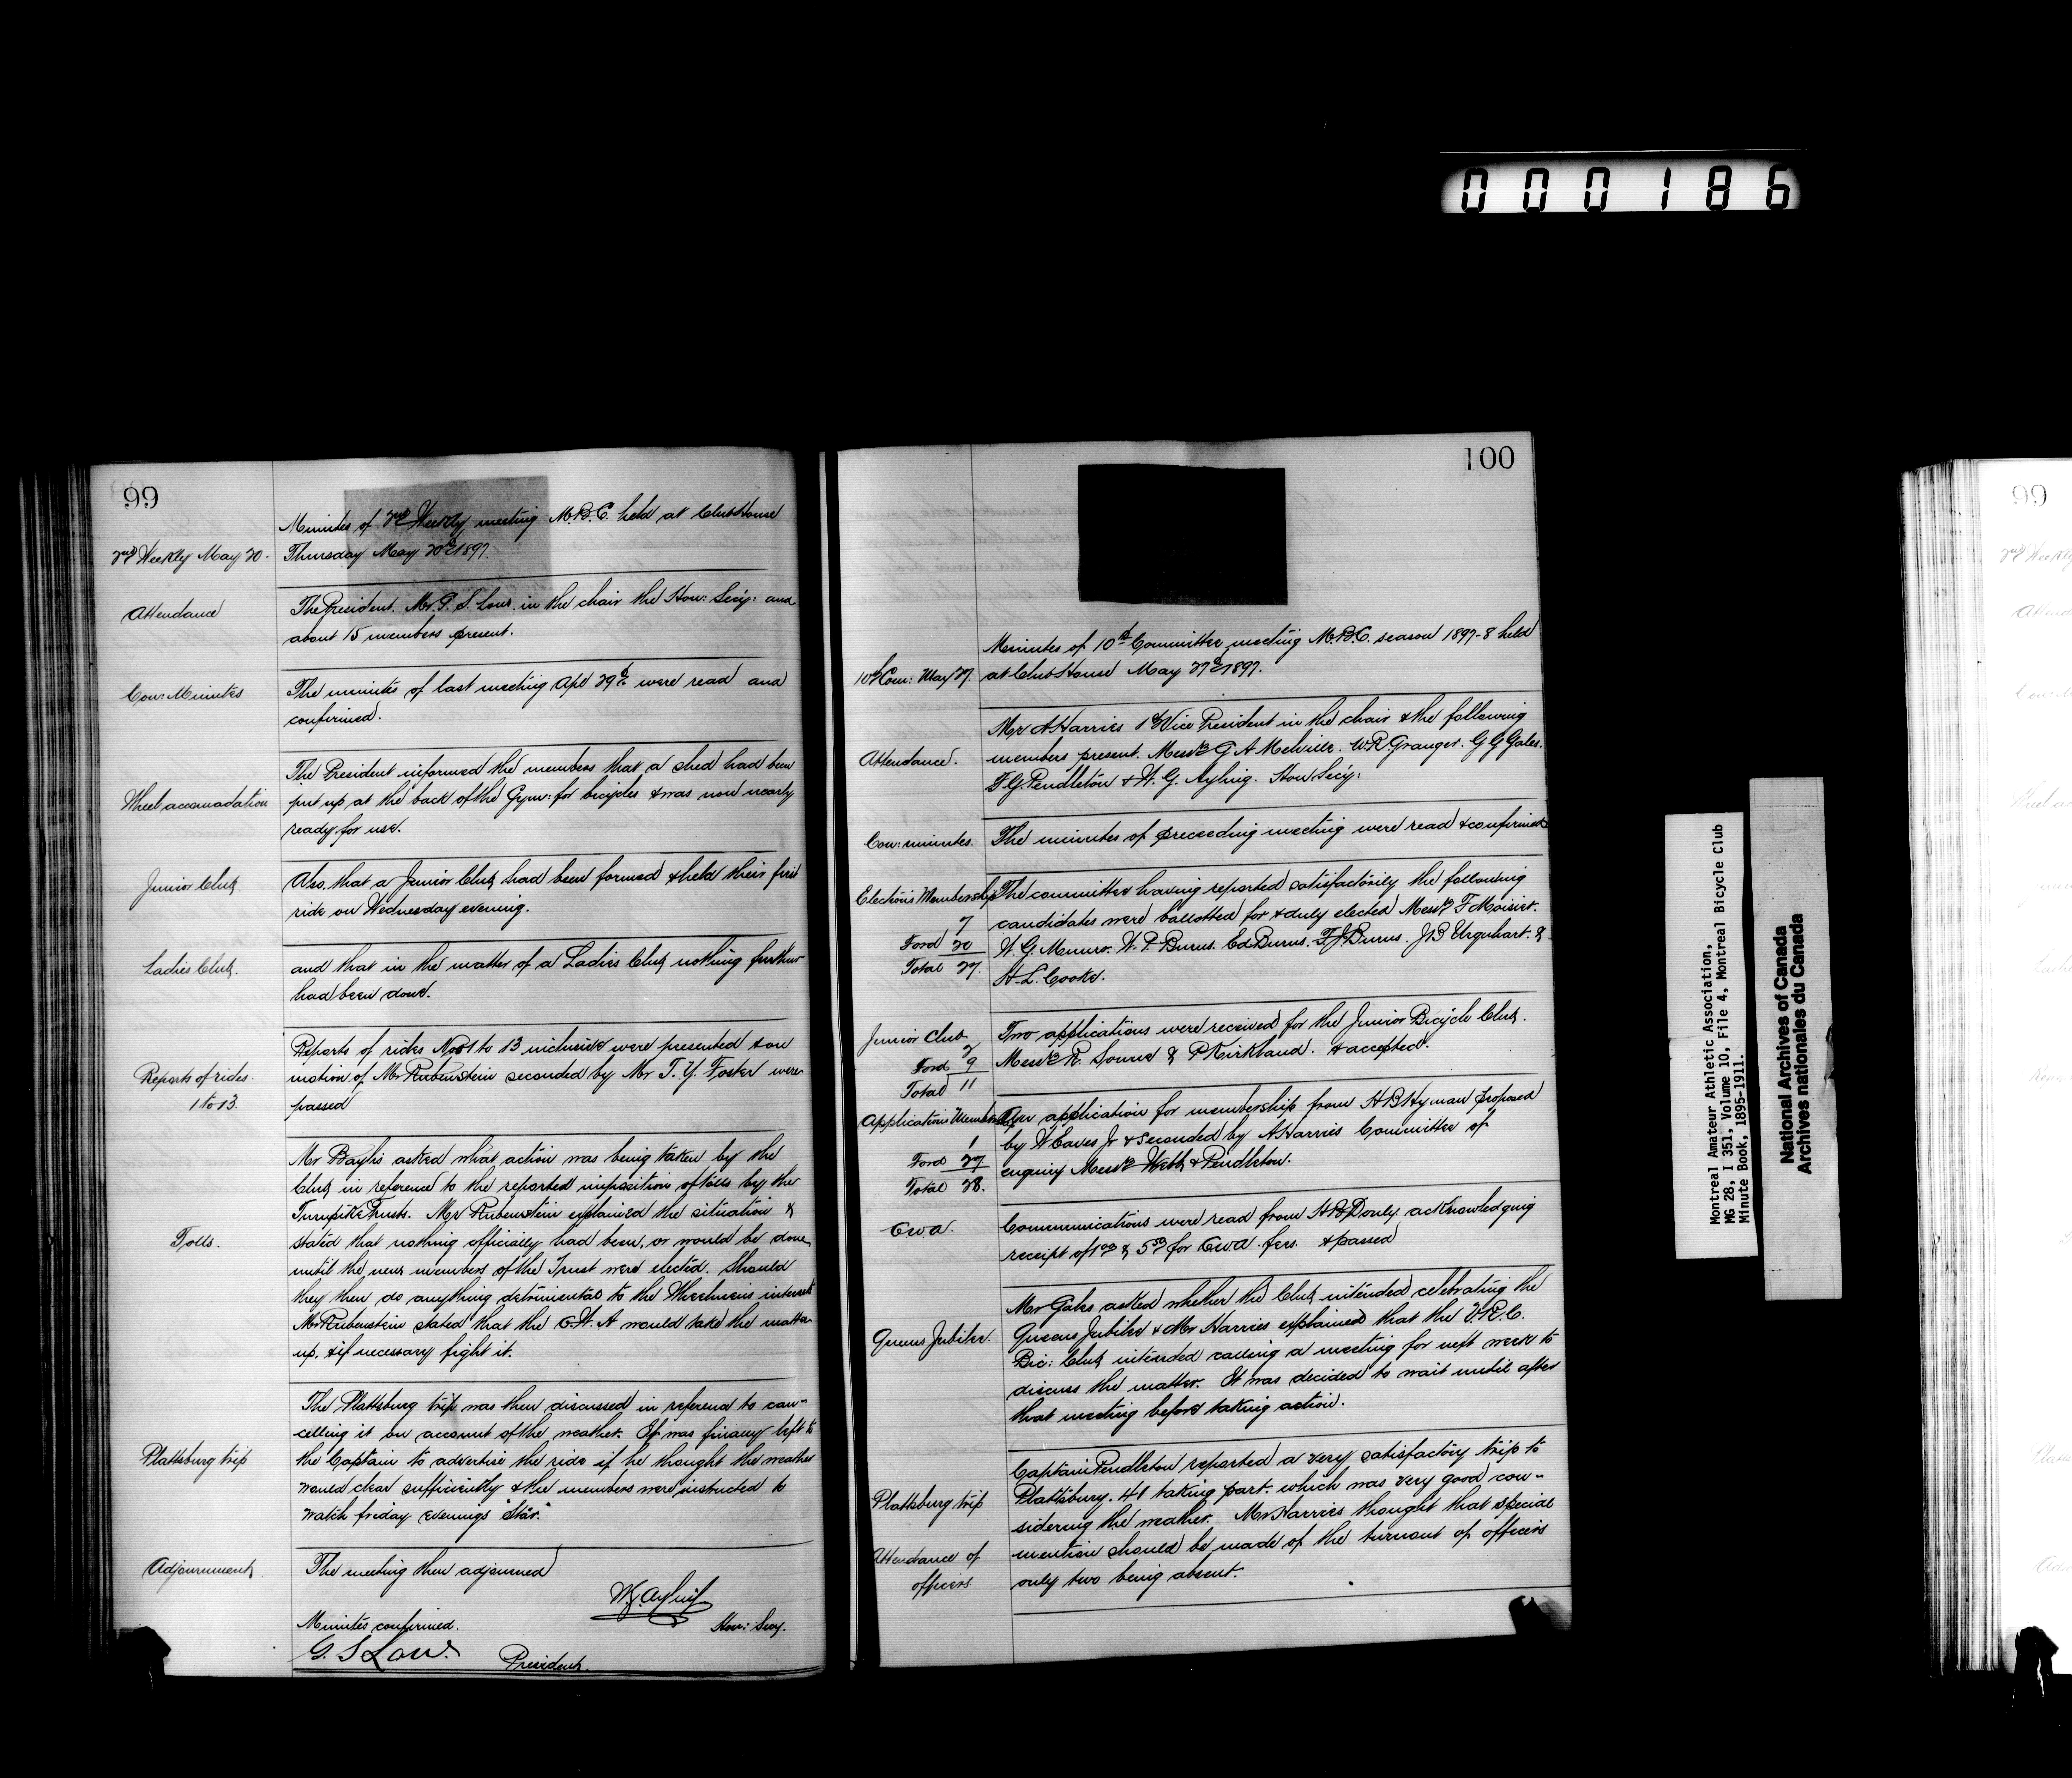 000186
99
Minutes of 2nd Weekly meeting M.B.C. held at Club House
2nd Weekly May 20. Thursday May 20th 1897.
Attendance
The President. Mr. G. S. Low. in the chair the Hon: Secy: and
about 15 members present.
Con: Minutes
The minutes of last meeting Apl 29th were read and
confirmed.
Wheel accomadation
The President informed the members that a shed had been
put up at the back of the Gym: for bicycles & was now nearly
ready for use.
Junior Club.
Also, that a Junior Club had been formed & held their first
ride on Wednesday evening.
Ladies Club.
and that in the matter of a Ladies Club nothing further
had been done.
Reports of rides.
1 to 13.
Reports of rides Nos 1 to 13 inclusive were presented & on
motion of Mr Rubenstein seconded by Mr T. Y. Foster were
passed
Tolls.
Mr Baylis asked what action was being taken by the
Club in reference to the reported imposition of tolls by the
Turnpike Trusts. Mr Rubenstein explained the situation &
stated that nothing officially had been, or would be done,
until the new members of the Trust were elected. Should
they then do anything detrimental to the Wheelmens interests
Mr Rubenstein stated that the C.W.A would take the matter
up, & if necessary fight it.
Plattsburg trip
The Plattsburg trip was then discussed in reference to can-
celling it on account of the weather. It was finally left to
the Captain to advertise the ride if he thought the weather
would clear sufficiently & the members were instructed to
watch friday evenings "Star."
Adjournment.
The meeting then adjourned
W.G. Ayling
Hon: Secy.
Minutes confirmed.
G. S Low.
President.
100
Minutes of 10th Committee meeting M.B.C. season 1897-8 held
10th Com: May 27. at Club House May 27th 1897.
Attendance.
Mr A Harries 1st Vice President in the chair & the following
members present. Messrs G A Melville. W.R. Granger. G G Gales.
F.G. Pendleton & W. G. Ayling. Hon Secy:
Con: minutes.
The minutes of preceeding meeting were read & confirmed
Elections Membership
7
Ford 20
Total 27.
The committee having reported satisfactorily the following
candidates were ballotted for & duly elected Messrs F Moisier.
W. G. Munro. W. P. Burns. Ed Burns. F. J. Burns. J B Urquhart. &
H. L. Cooke.
Junior Club
2
Ford 9
Total 11
Two applications were received for the Junior Bicycle Club.
Messrs R. & P Kirkland. & accepted.
Applications Membership
1
Ford 27
Total 28.
An application for membership from H B Hyman proposed
by W Eaves Jr & seconded by A Harries Committee of
enquiry Messrs Webb & Pendleton.
C W A.
Communications were read from H B Donly acknowledging
receipt of 1 00 & 5 50 for C.W.A. fees. & passed
Queens Jubilee.
Mr Gales asked whether the Club intended celebrating the
Queens Jubilee & Mr Harries explained that the V.R.C.
Bic: Club intended calling a meeting for next week to
discuss the matter. It was decided to wait until after
that meeting before taking action.
Plattsburg trip
Captain Pendleton reported a very satisfactory trip to
Plattsburg. 41 taking part. which was very good con-
sidering the weather. Mr Harries thought that special
Attendance of
officers
mention should be made of the turnout of officers
only two being absent.
Montreal Amateur Athletic Association,
MG 28, I 351, Volume 10, File 4, Montreal Bicycle Club
Minute Book, 1895-1911.
National Archives of Canada
Archives nationales du Canada
99